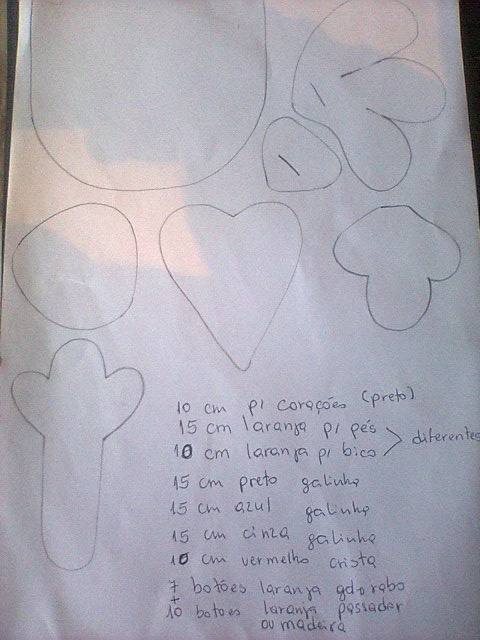 10 cm p/ corações (preto)
15 cm laranja p/ pés
10 cm laranja p/ bico
diferentes
15 cm preto galinha
15 cm azul galinha
15 cm cinza galinha
10 cm vermelho crista
7 botões laranja gd rabo
+
10 botoes laranja passador
ou madeira